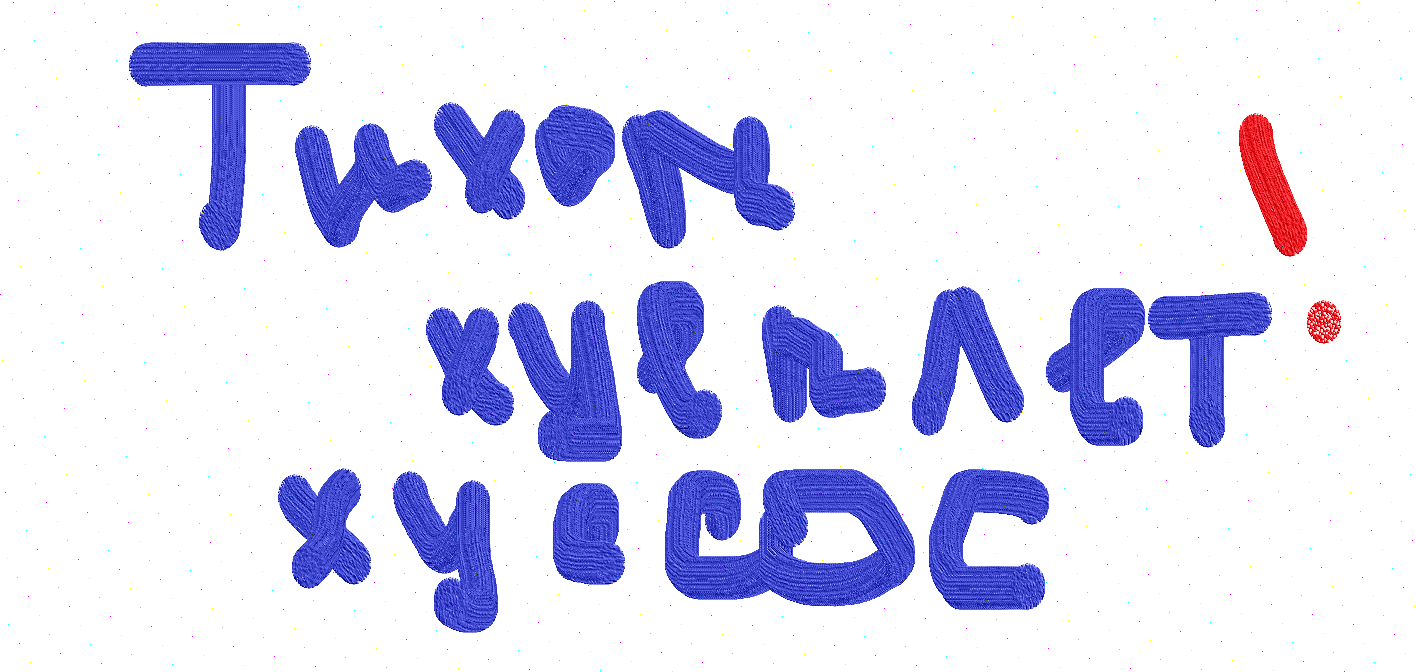 Тихон
хуеплет!
хуесос